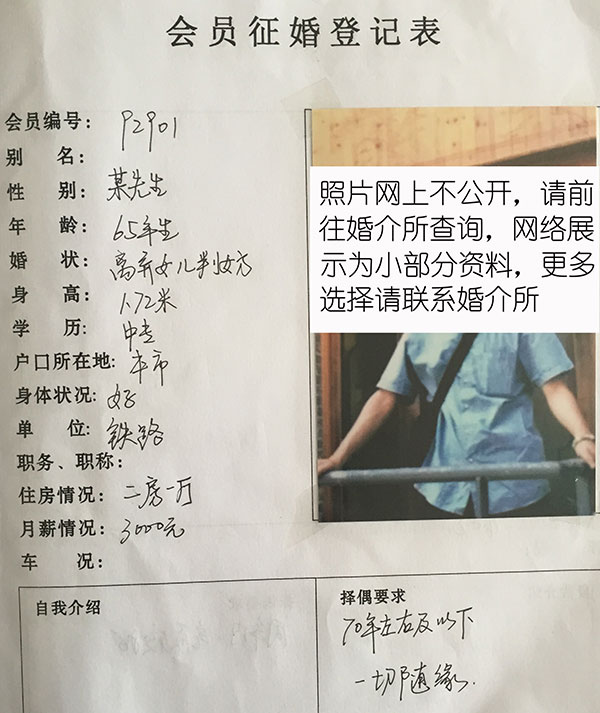 会员征婚登记表
会员编号: P2901
别 名:
性 别: 某先生
年 龄: 65年生
婚 状: 离异女儿判女方
身 高: 1.72米
学 历: 中专
户口所在地: 本市
身体状况: 好
单 位: 铁路
职务、职称:
住房情况: 二房一厅
月薪情况: 3000元
车 况:
照片网上不公开，请前
往婚介所查询，网络展
示为小部分资料，更多
选择请联系婚介所
自我介绍
择偶要求
70年左右及以下
一切随缘.